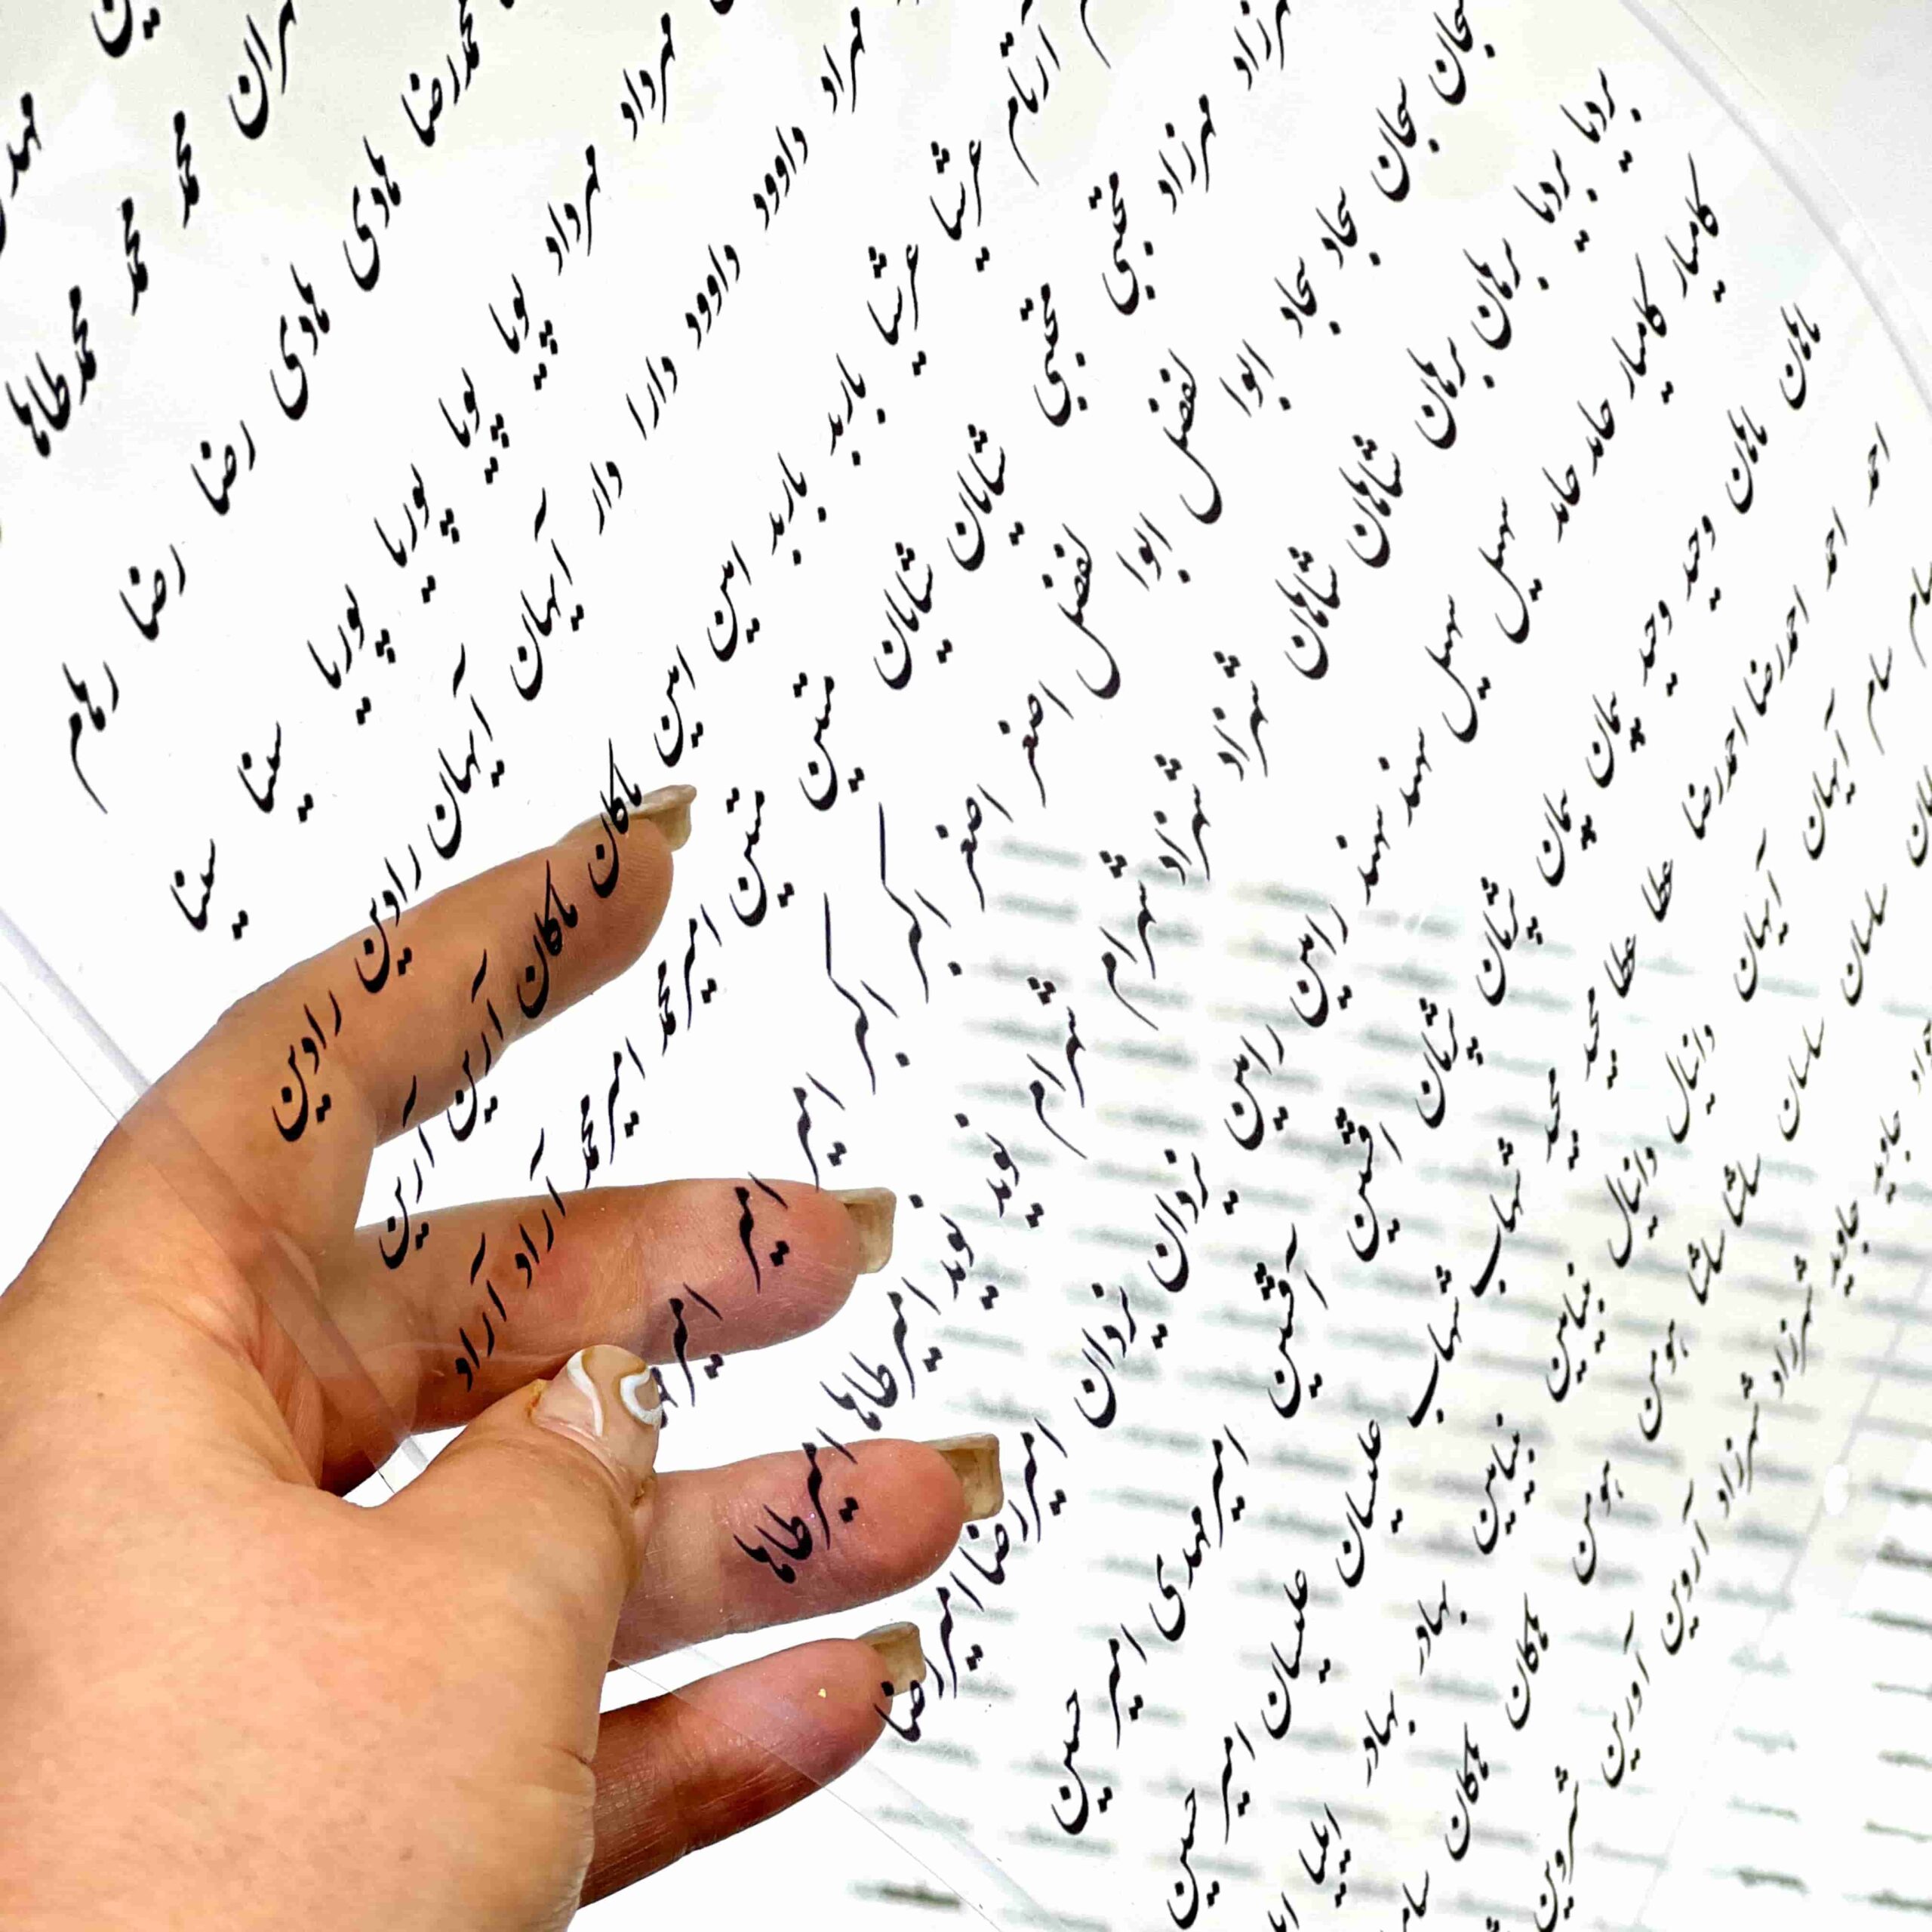 محمد محمد محمدطاها
محمدرضا هادی هادی رضا رضا رهام
مهرداد مهرداد پویا پویا پوریا پوریا سینا سینا
مهراد داوود داوود دارا دار آیهان آیهان رادین رادین
آرتام عرشیا عرشیا باربد باربد امین امین ماکان ماکان آرین آرین
مهرزاد مهرزاد مجتبی مجتبی شایان شایان متین متین امیرمحمد امیرمحمد آراد آراد
سبحان سبحان سجاد سجاد ابوا لفضل ابوا لفضل اصغر اصغر اکبر اکبر امیر امیر
بردیا بردیا برهان برهان شاهان شاهان شهرزاد شهرزاد شهرام شهرام نوید نوید امیرطاها امیرطاها
کامیار کامیار حامد حامد سهیل سهیل سهند سهند رامین رامین یزدان یزدان امیررضا امیررضا
ماهان ماهان وحید وحید پیمان پیمان پژمان پژمان افشین آفشین امیرمهدی امیر حسین
احمد احمد احمدرضا احمدرضا عطا عطا مجید مجید شهاب شهاب علیسان علیسان امیر حسین
سام سام آیهان آیهان دانیال دانیال بنیامین بنیامین بهادر بهادر ایلیا
سامان سامان ساشا ساشا هومن هومن هاکان هاکان
جاوید جاوید شهرزاد شهرزاد آروین آروین شروین